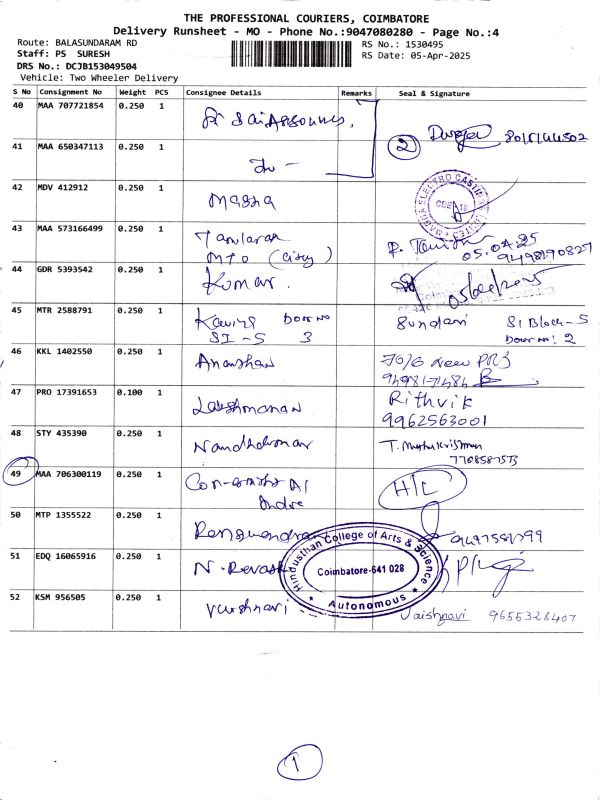 THE PROFESSIONAL COURIERS, COIMBATORE
Delivery Runsheet - MO - Phone No.:9047080280 - Page No.:4
Route: BALASUNDARAM RD
RS No.: 1530495
Staff: PS SURESH
RS Date: 05-Apr-2025
DRS No.: DCJB153049504
Vehicle: Two Wheeler Delivery
S No Consignment No Weight PCS Consignee Details Remarks Seal & Signature
40 MAA 707721854 0.250 1
2
41 MAA 650347113 0.250 1
42 MDV 412912 0.250 1 Magna
MAGNA ELECTRO CASTINGS LIMITED
CBE-18
43 MAA 573166499 0.250 1
05.04.25
9498190827
44 GDR 5393542 0.250 1 Kumar.
45 MTR 2588791 0.250 1 Door No 3
SI - S
Sundari SI Block-S
Door no: 2
46 KKL 1402550 0.250 1
70/6 New PRS
47 PRO 17391653 0.100 1 Lakshmanan
Rithvik
9962563001
48 STY 435390 0.250 1 Nandhakumar
T. Muthukrishnan
49 MAA 706300119 0.250 1
H/C
50 MTP 1355522 0.250 1
51 EDQ 16065916 0.250 1
Hindusthan College of Arts & Science
Coimbatore-641 028
Autonomous
52 KSM 956505 0.250 1 Vaishnavi
Vaishnavi 9655328407
1